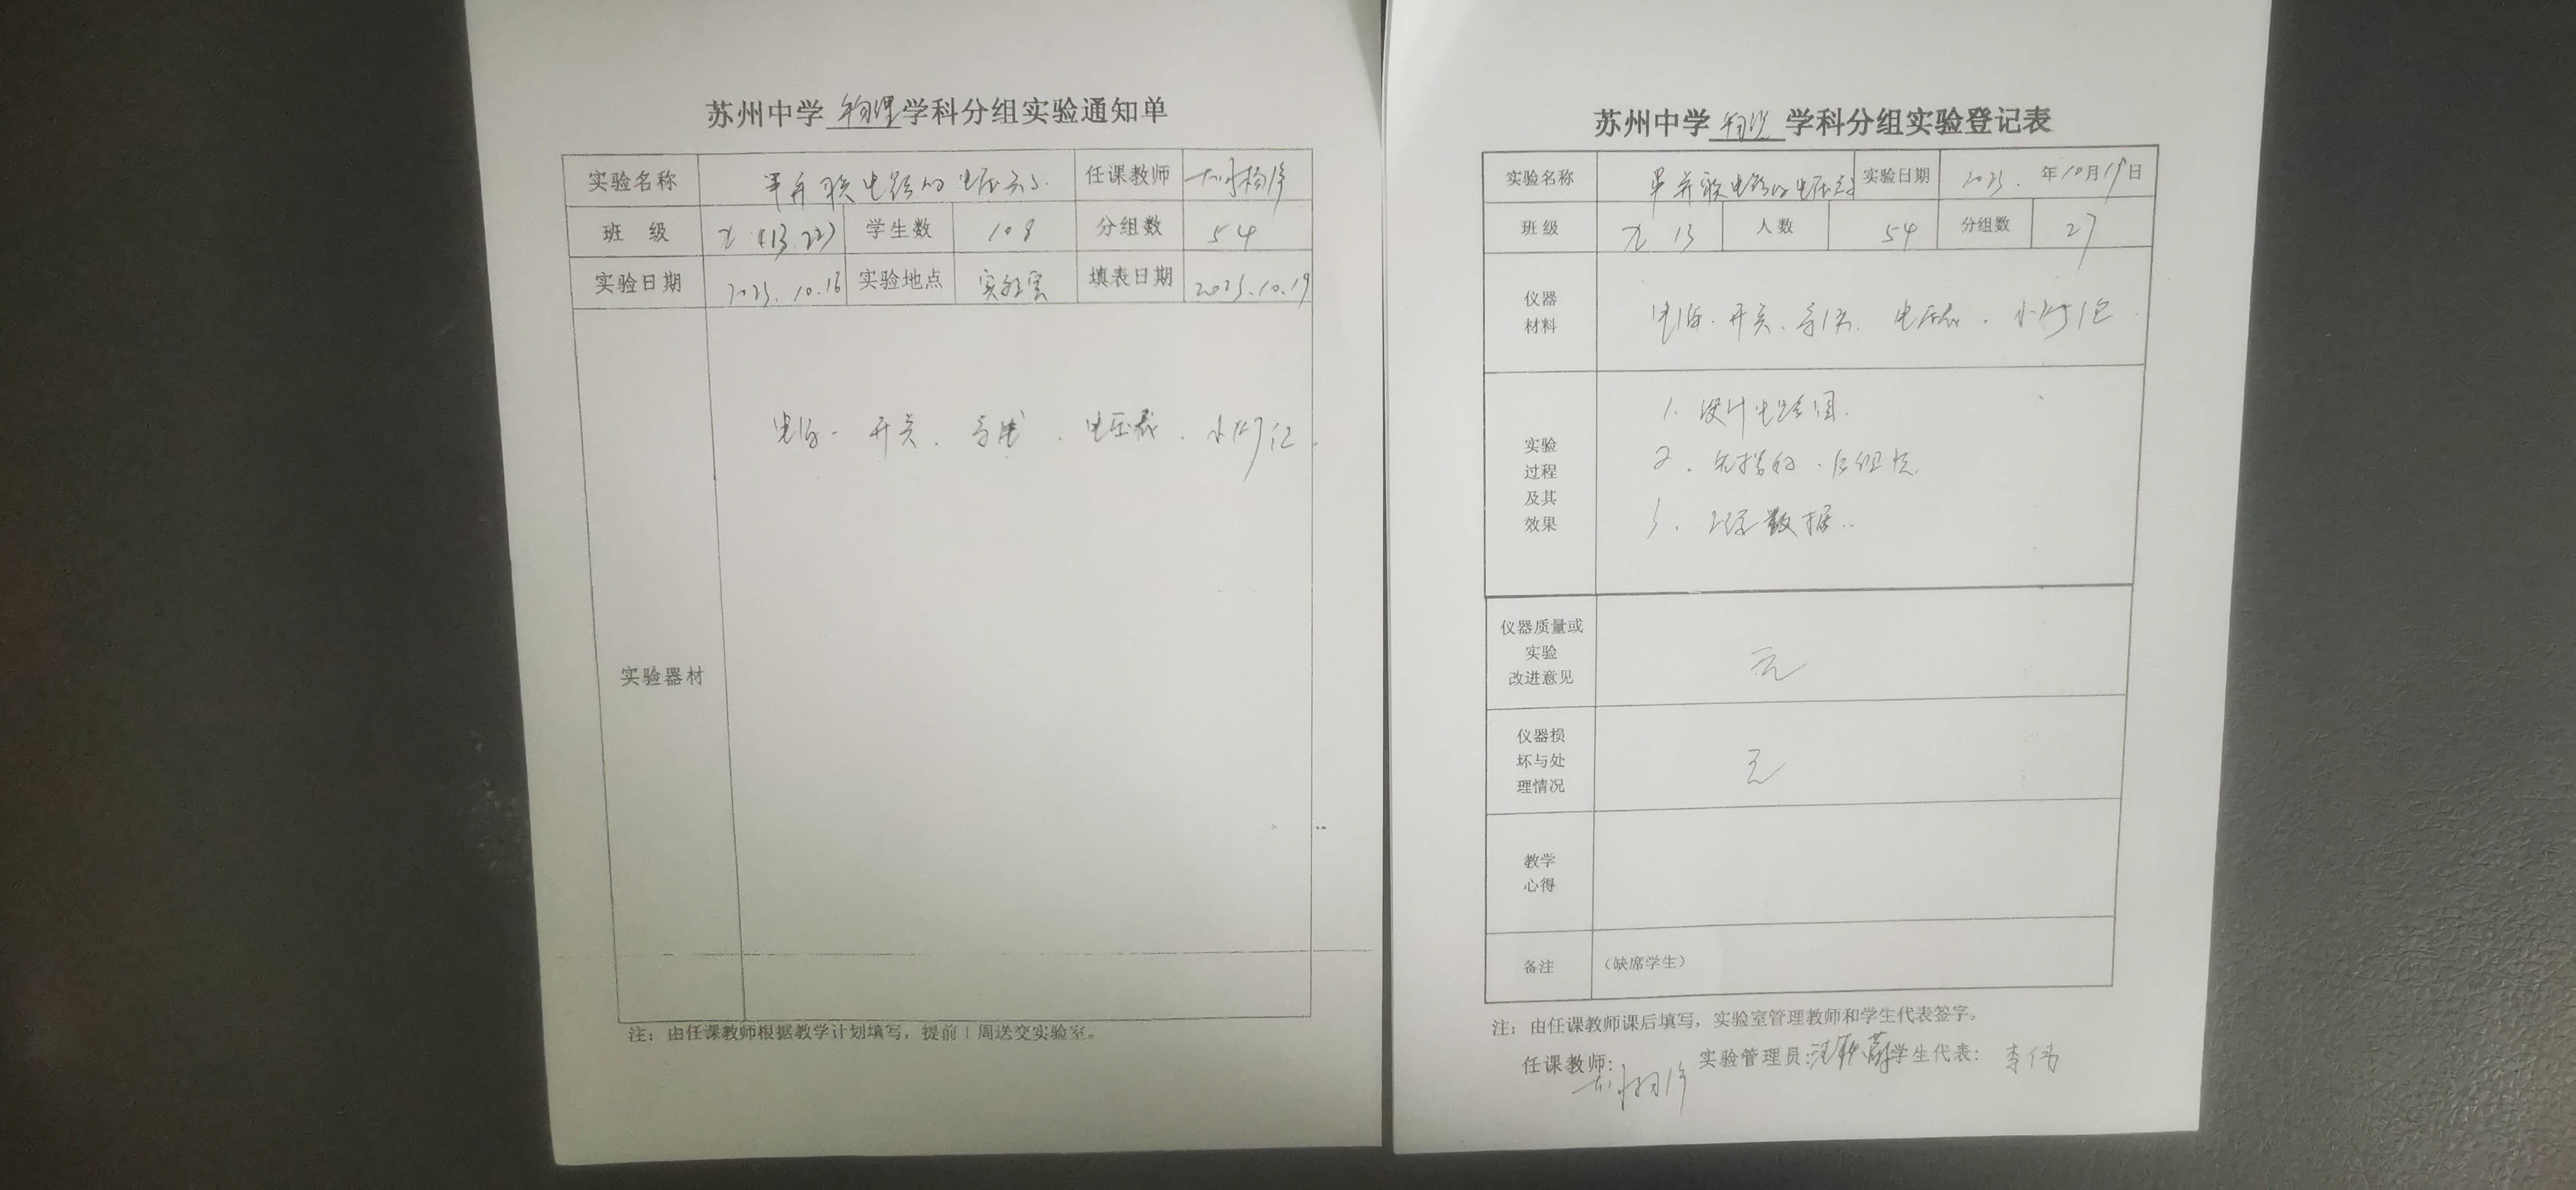 苏州中学 物理 学科分组实验通知单
实验名称 串并联电路的电压 任课教师
班 级 九(13.22) 学生数 108 分组数 54
实验日期 2023.10.16 实验地点 实验室 填表日期 2023.10.19
实验器材
电源. 开关. 导线. 电压表. 小灯泡.
注：由任课教师根据教学计划填写，提前1周送交实验室。
苏州中学 物理 学科分组实验登记表
实验名称 串并联电路的电压 实验日期 2023.年10月19日
班级 九 13 人数 54 分组数 27
仪器
材料
电源. 开关. 导线. 电压表. 小灯泡.
实验
过程
及其
效果
1. 设计电路图.
2.
3. 记录数据..
仪器质量或
实验
改进意见
无
仪器损
坏与处
理情况
无
教学
心得
备注 （缺席学生）
注：由任课教师课后填写，实验室管理教师和学生代表签字。
任课教师: 实验管理员: 学生代表: 李伟